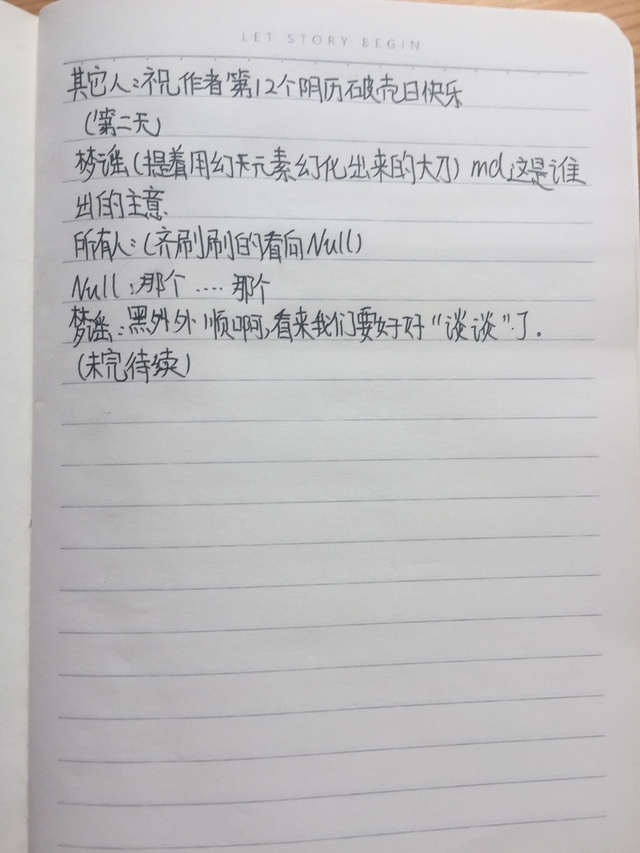 LET STORY BEGIN
其它人:祝作者第12个阴历破壳日快乐
(第二天)
梦谣(提着用幻天元素幻化出来的大刀) md,这是谁
出的主意.
所有人:(齐刷刷的看向Null)
Null:那个....那个
梦谣:黑外外顺啊,看来我们要好好“谈谈”了.
(未完待续)